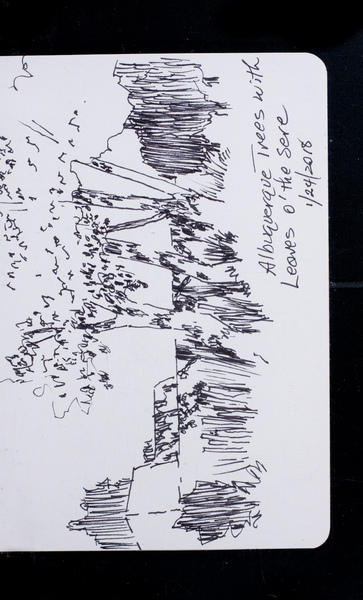 Albuquerque Trees with
Leaves o' the Sere
1/24/2018